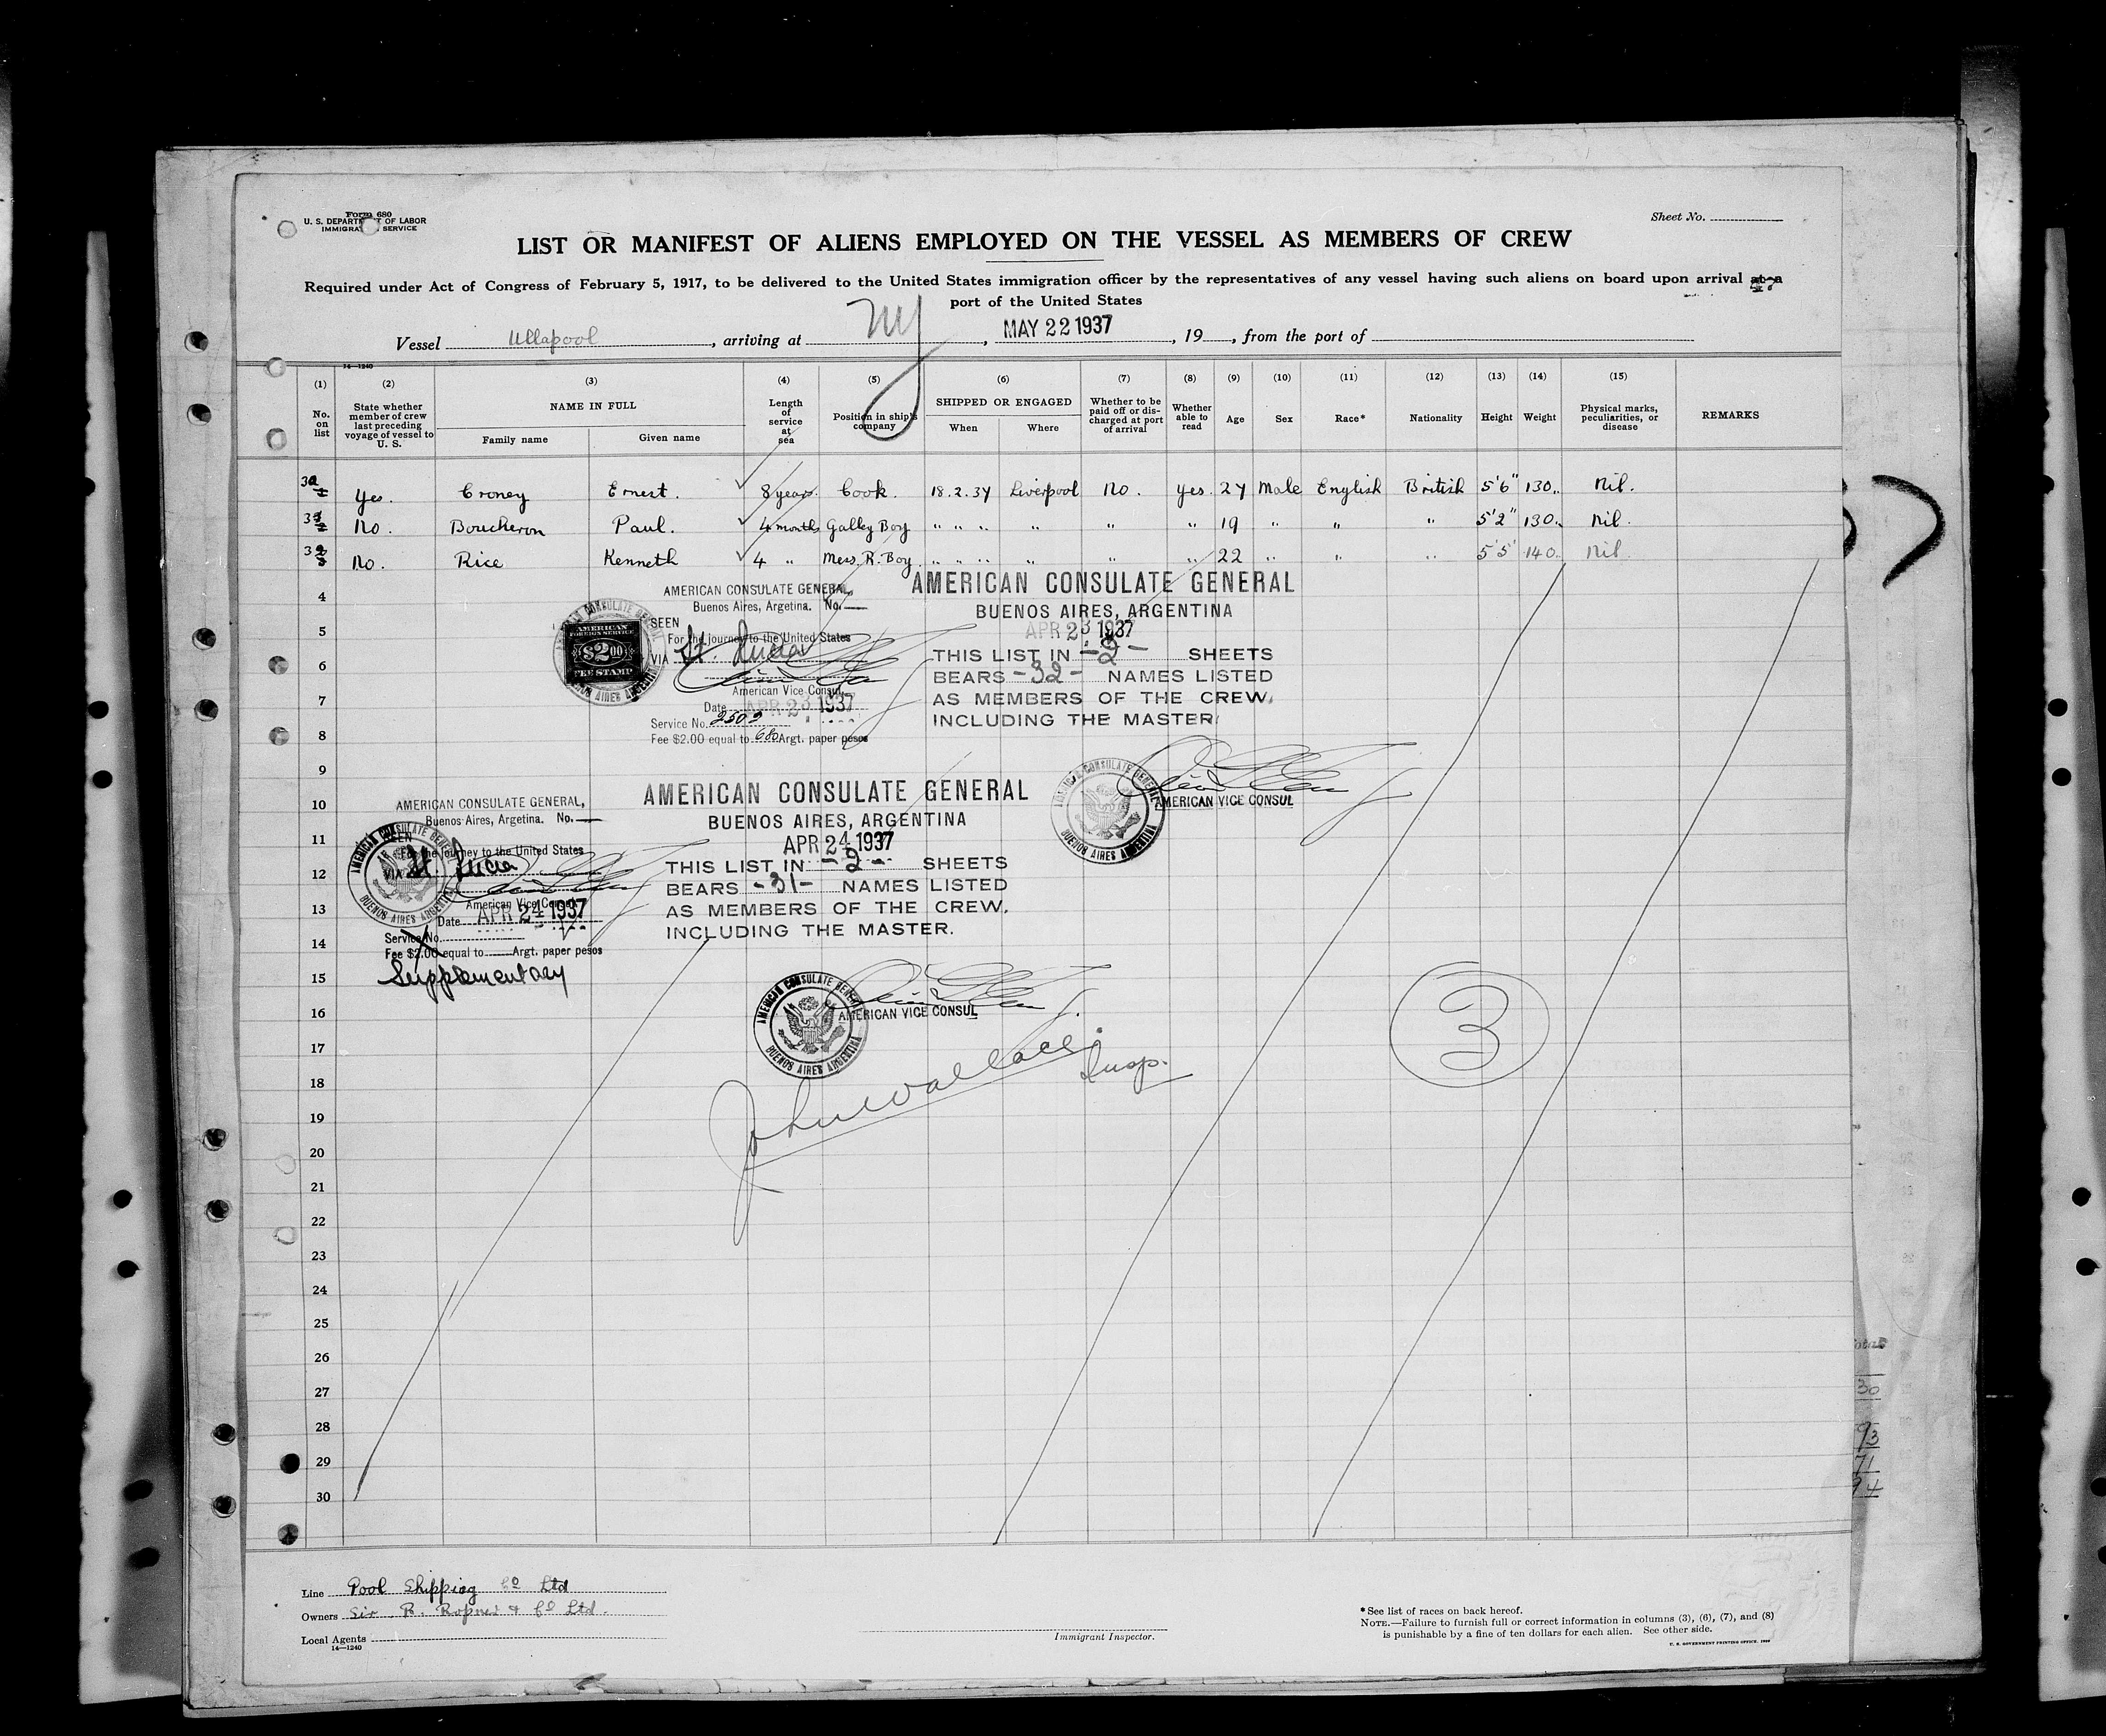 Form 680
U. S. DEPARTMENT OF LABOR
IMMIGRATION SERVICE
Sheet No.
LIST OR MANIFEST OF ALIENS EMPLOYED ON THE VESSEL AS MEMBERS OF CREW
Required under Act of Congress of February 5, 1917, to be delivered to the United States immigration officer by the representatives of any vessel having such aliens on board upon arrival at a
port of the United States
Vessel Ullapool, arriving at NY, MAY 22 1937, 19__, from the port of
14—1240
(1) (2) (3) (4) (5) (6) (7) (8) (9) (10) (11) (12) (13) (14) (15)
No. on list
State whether member of crew last preceding voyage of vessel to U. S.
NAME IN FULL
Family name
Given name
Length of service at sea
Position in ship's company
SHIPPED OR ENGAGED
When
Where
Whether to be paid off or discharged at port of arrival
Whether able to read
Age
Sex
Race*
Nationality
Height
Weight
Physical marks, peculiarities, or disease
REMARKS
Yes. Croney Ernest. 8 years. Cook. 18.2.37 Liverpool No. Yes. 27 Male English British 5'6" 130 Nil.
No. Boucheron Paul. 4 months Galley Boy " " " " " " 19 " " " 5'2" 130 Nil.
No. Rice Kenneth 4 " Mess. R. Boy " " " " " " 22 " " " 5'5" 140 Nil.
AMERICAN CONSULATE GENERAL,
Buenos Aires, Argetina. No.
SEEN
For the journey to the United States
VIA St. Lucia
American Vice Consul.
Date APR 23 1937
Service No. 2509
Fee $2.00 equal to Argt. paper pesos
AMERICAN FOREIGN SERVICE
$2.00
FEE STAMP
AMERICAN CONSULATE GENERAL
BUENOS AIRES, ARGENTINA
APR 23 1937
THIS LIST IN -2- SHEETS
BEARS -32- NAMES LISTED
AS MEMBERS OF THE CREW,
INCLUDING THE MASTER.
AMERICAN CONSULATE GENERAL
BUENOS AIRES ARGENTINA
AMERICAN VICE CONSUL
AMERICAN CONSULATE GENERAL,
Buenos Aires, Argetina. No.
SEEN
For the journey to the United States
VIA St. Lucia
American Vice Consul
Date APR 24 1937
Service No.
Fee $2.00 equal to Argt. paper pesos
Supplementary
AMERICAN CONSULATE GENERAL
BUENOS AIRES ARGENTINA
AMERICAN CONSULATE GENERAL
BUENOS AIRES, ARGENTINA
APR 24 1937
THIS LIST IN -2- SHEETS
BEARS -31- NAMES LISTED
AS MEMBERS OF THE CREW,
INCLUDING THE MASTER.
AMERICAN CONSULATE GENERAL
BUENOS AIRES ARGENTINA
AMERICAN VICE CONSUL
John Wallace Insp.
3
4
5
6
7
8
9
10
11
12
13
14
15
16
17
18
19
20
21
22
23
24
25
26
27
28
29
30
Line Pool Shipping Co Ltd
Owners Sir. R. Ropner & Co Ltd.
Local Agents
14—1240
Immigrant Inspector.
*See list of races on back hereof.
NOTE.—Failure to furnish full or correct information in columns (3), (6), (7), and (8)
is punishable by a fine of ten dollars for each alien. See other side.
U. S. GOVERNMENT PRINTING OFFICE